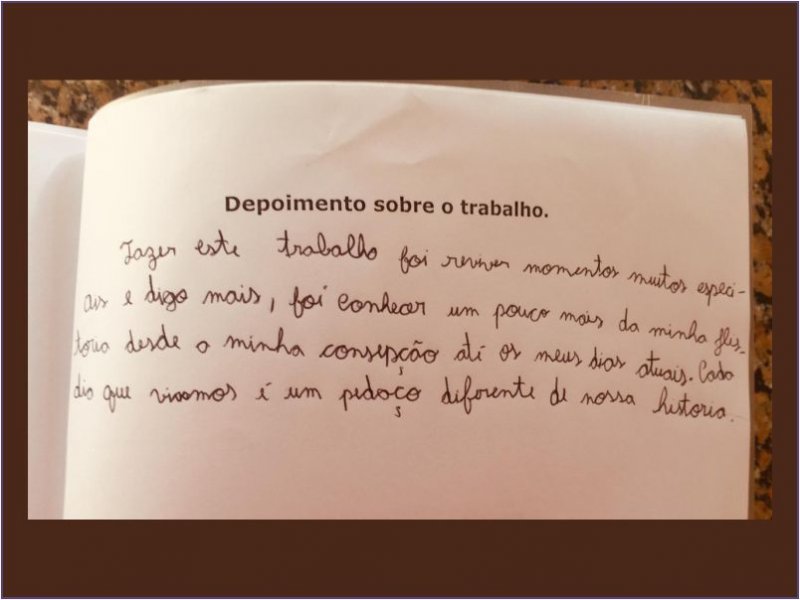 Depoimento sobre o trabalho.
Fazer este trabalho foi reviver momentos muitos especi-
ais e digo mais, foi conhecer um pouco mais da minha His-
toria desde a minha consepção até os meus dias atuais. Cada
dia que vivemos é um pedaço diferente de nossa historia.